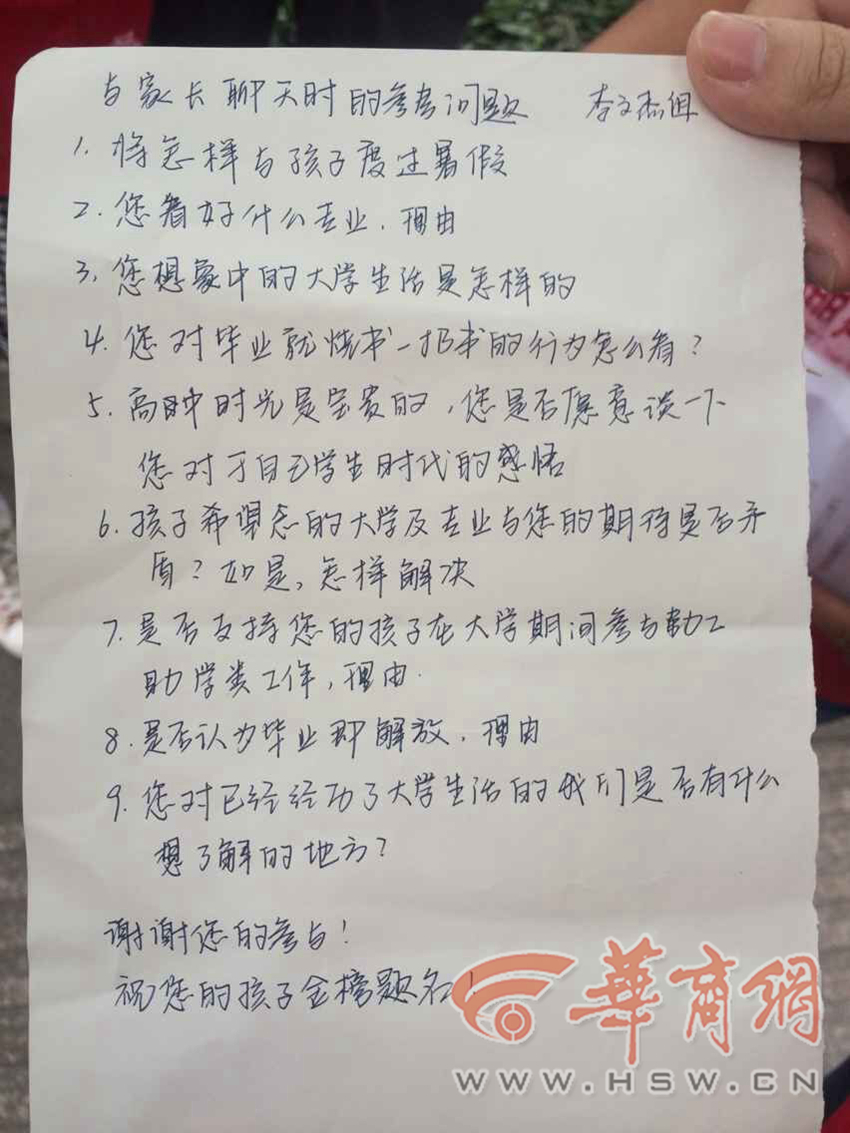 与家长聊天时的参考问题 李文杰组
1. 将怎样与孩子度过暑假
2. 您看好什么专业,理由
3. 您想象中的大学生活是怎样的
4. 您对毕业就烧书-扔书的行为怎么看?
5. 高中时光是宝贵的,您是否愿意谈一下
您对于自己学生时代的感悟
6. 孩子希望念的大学及专业与您的期待是否矛
盾?如是,怎样解决
7. 是否支持您的孩子在大学期间参与勤工
助学类工作,理由.
8. 是否认为毕业即解放,理由
9. 您对已经经历了大学生活的我们是否有什么
想了解的地方?
谢谢您的参与!
祝您的孩子金榜题名!
華商網
WWW.HSW.CN